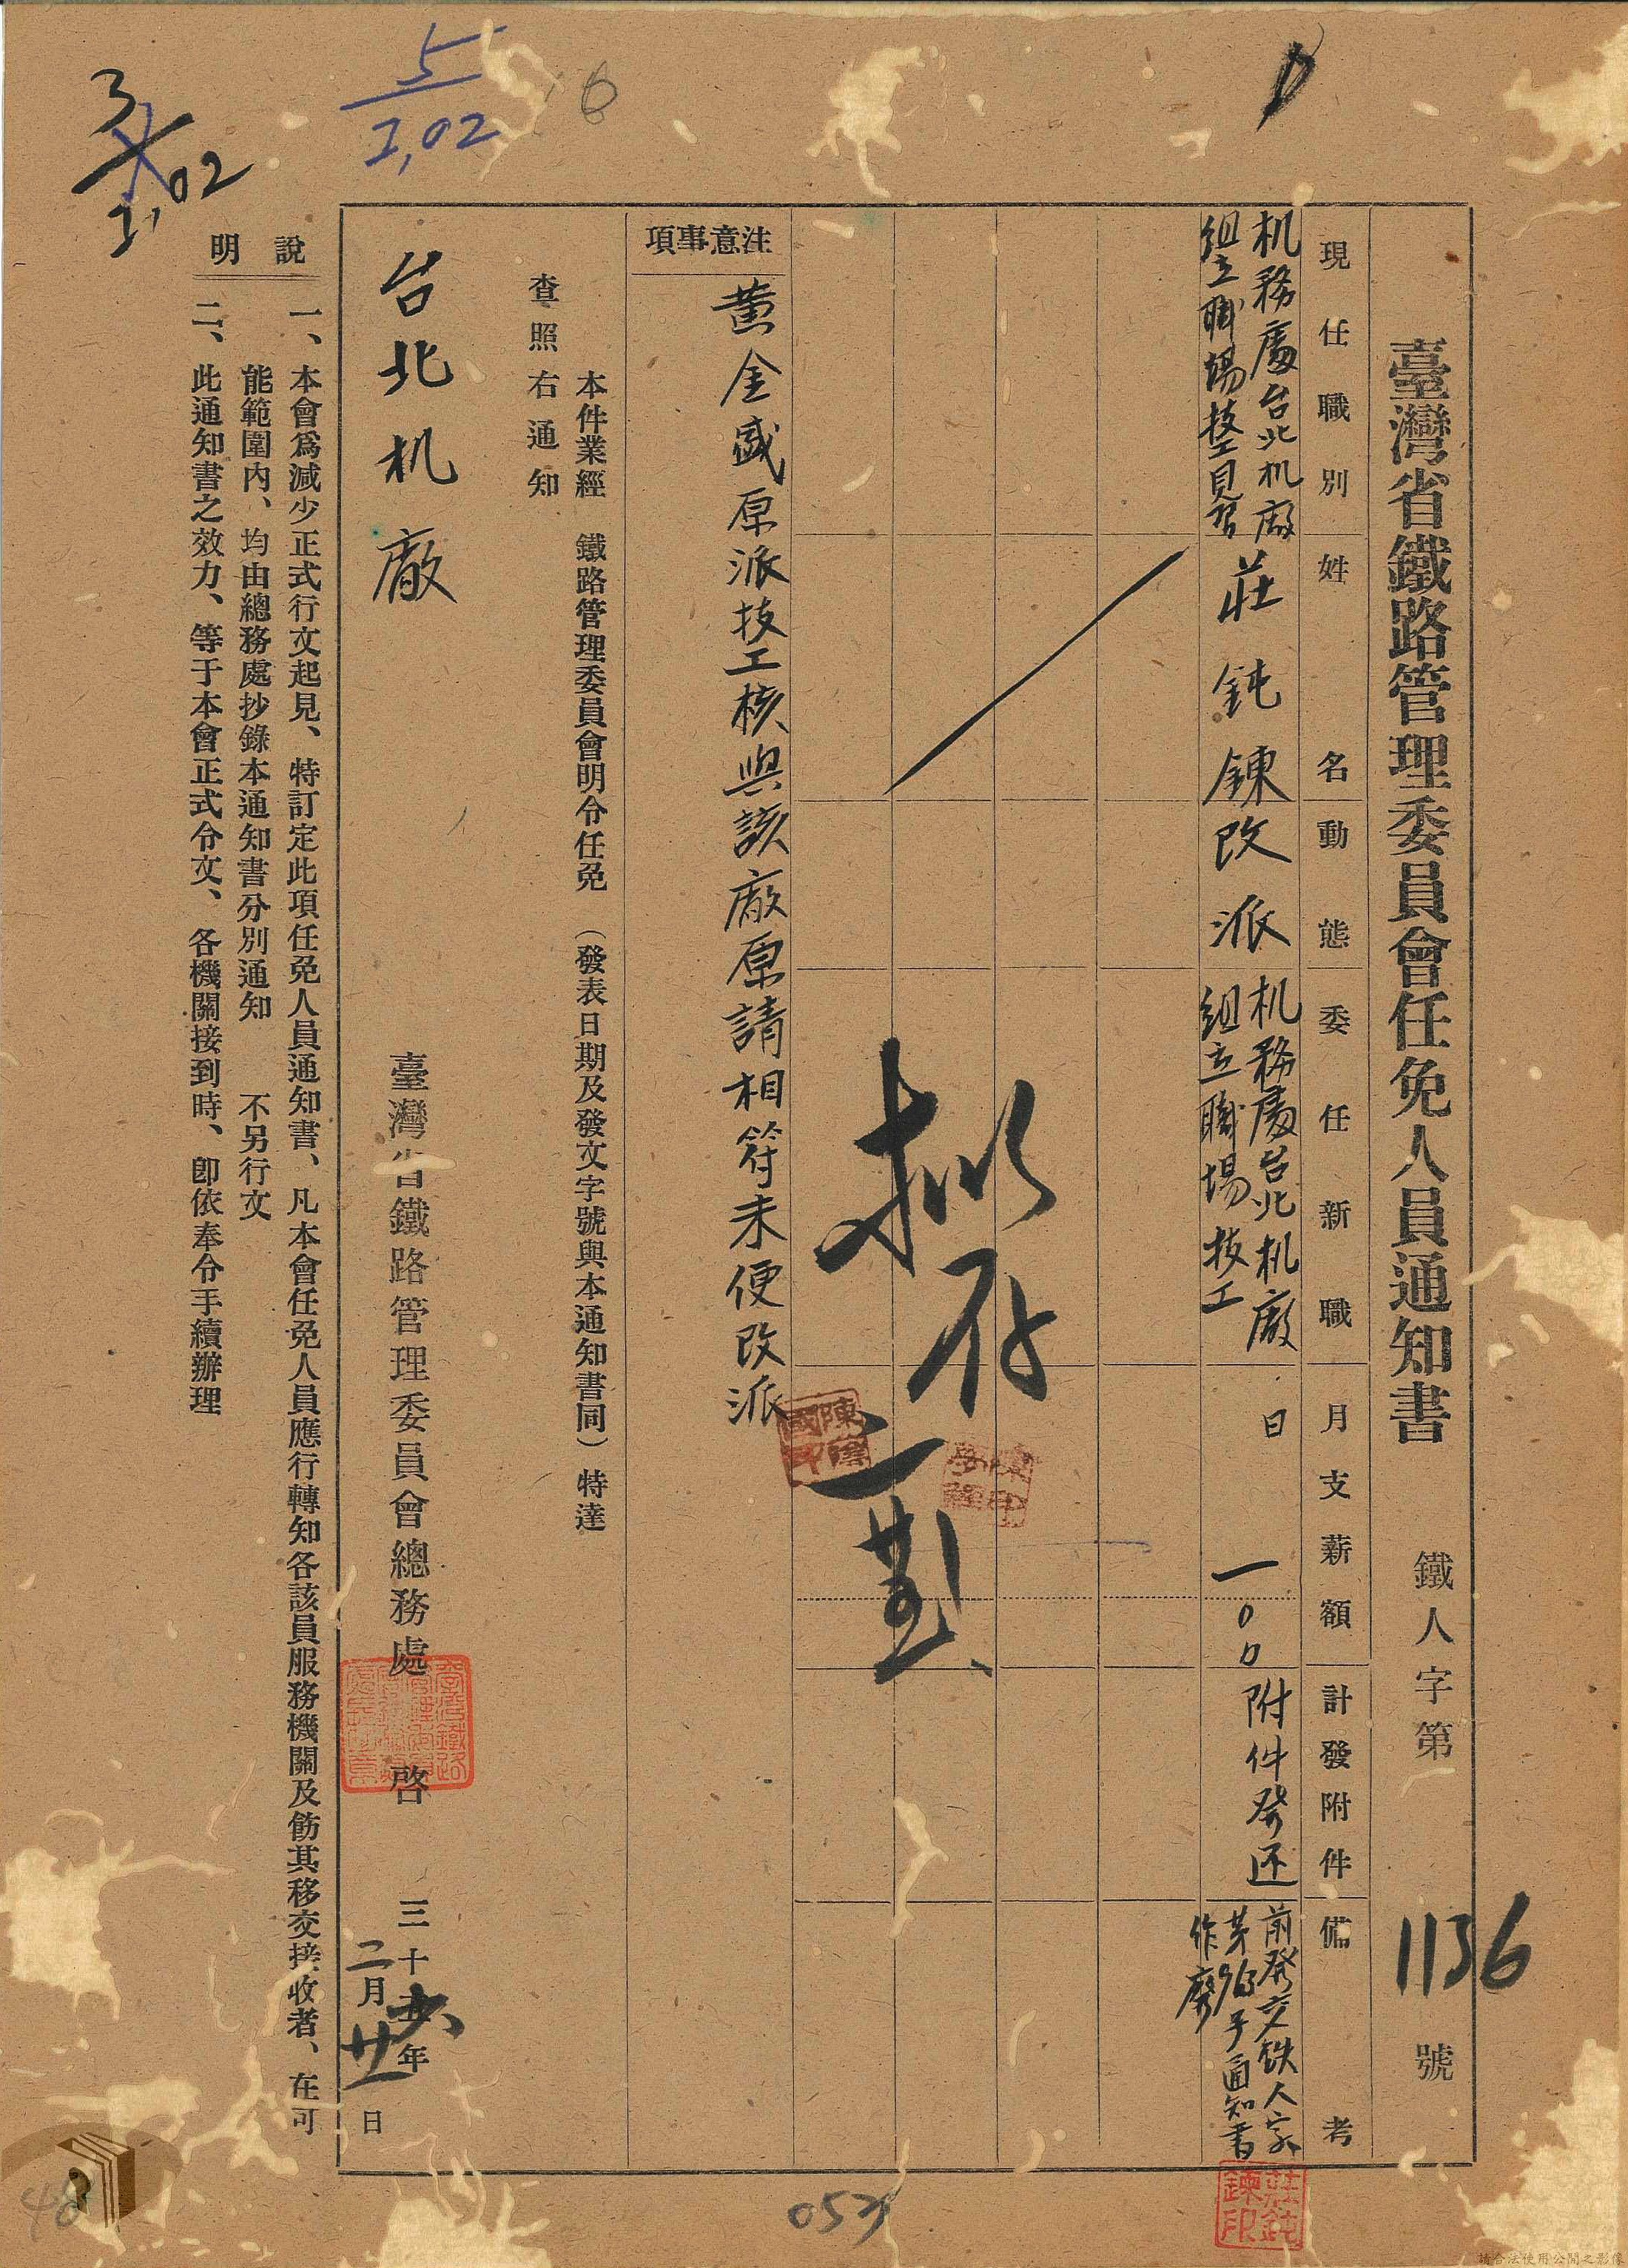 臺灣省鐵路管理委員會任免人員通知書
鐵人字第1136號
現任職別
姓名
動態
委任新職
月支薪額
計發附件
備考
机務處台北机廠
組立職場技工見習
莊鈍鍊
改派
机務處台北机廠
組立職場技工
日
一〇〇
附件發还
前發交鉄人字
通知書
作廢
擬存
注意事項
黃金盛原派技工核與該廠原請相符未便改派
本件業經 鐵路管理委員會明令任免 (發表日期及發文字號與本通知書同) 特達
查照右通知
台北机廠
臺灣省鐵路管理委員會總務處 啓
三十六年
二月廿一日
說明
一、本會爲減少正式行文起見、特訂定此項任免人員通知書、凡本會任免人員應行轉知各該員服務機關及飭其移交接收者、在可
能範圍內、均由總務處抄錄本通知書分別通知 不另行文
二、此通知書之效力、等于本會正式令文、各機關接到時、卽依奉令手續辦理
莊鈍鍊印
5
1,02
6
3
1,02
053
48
請合法使用公開之影像